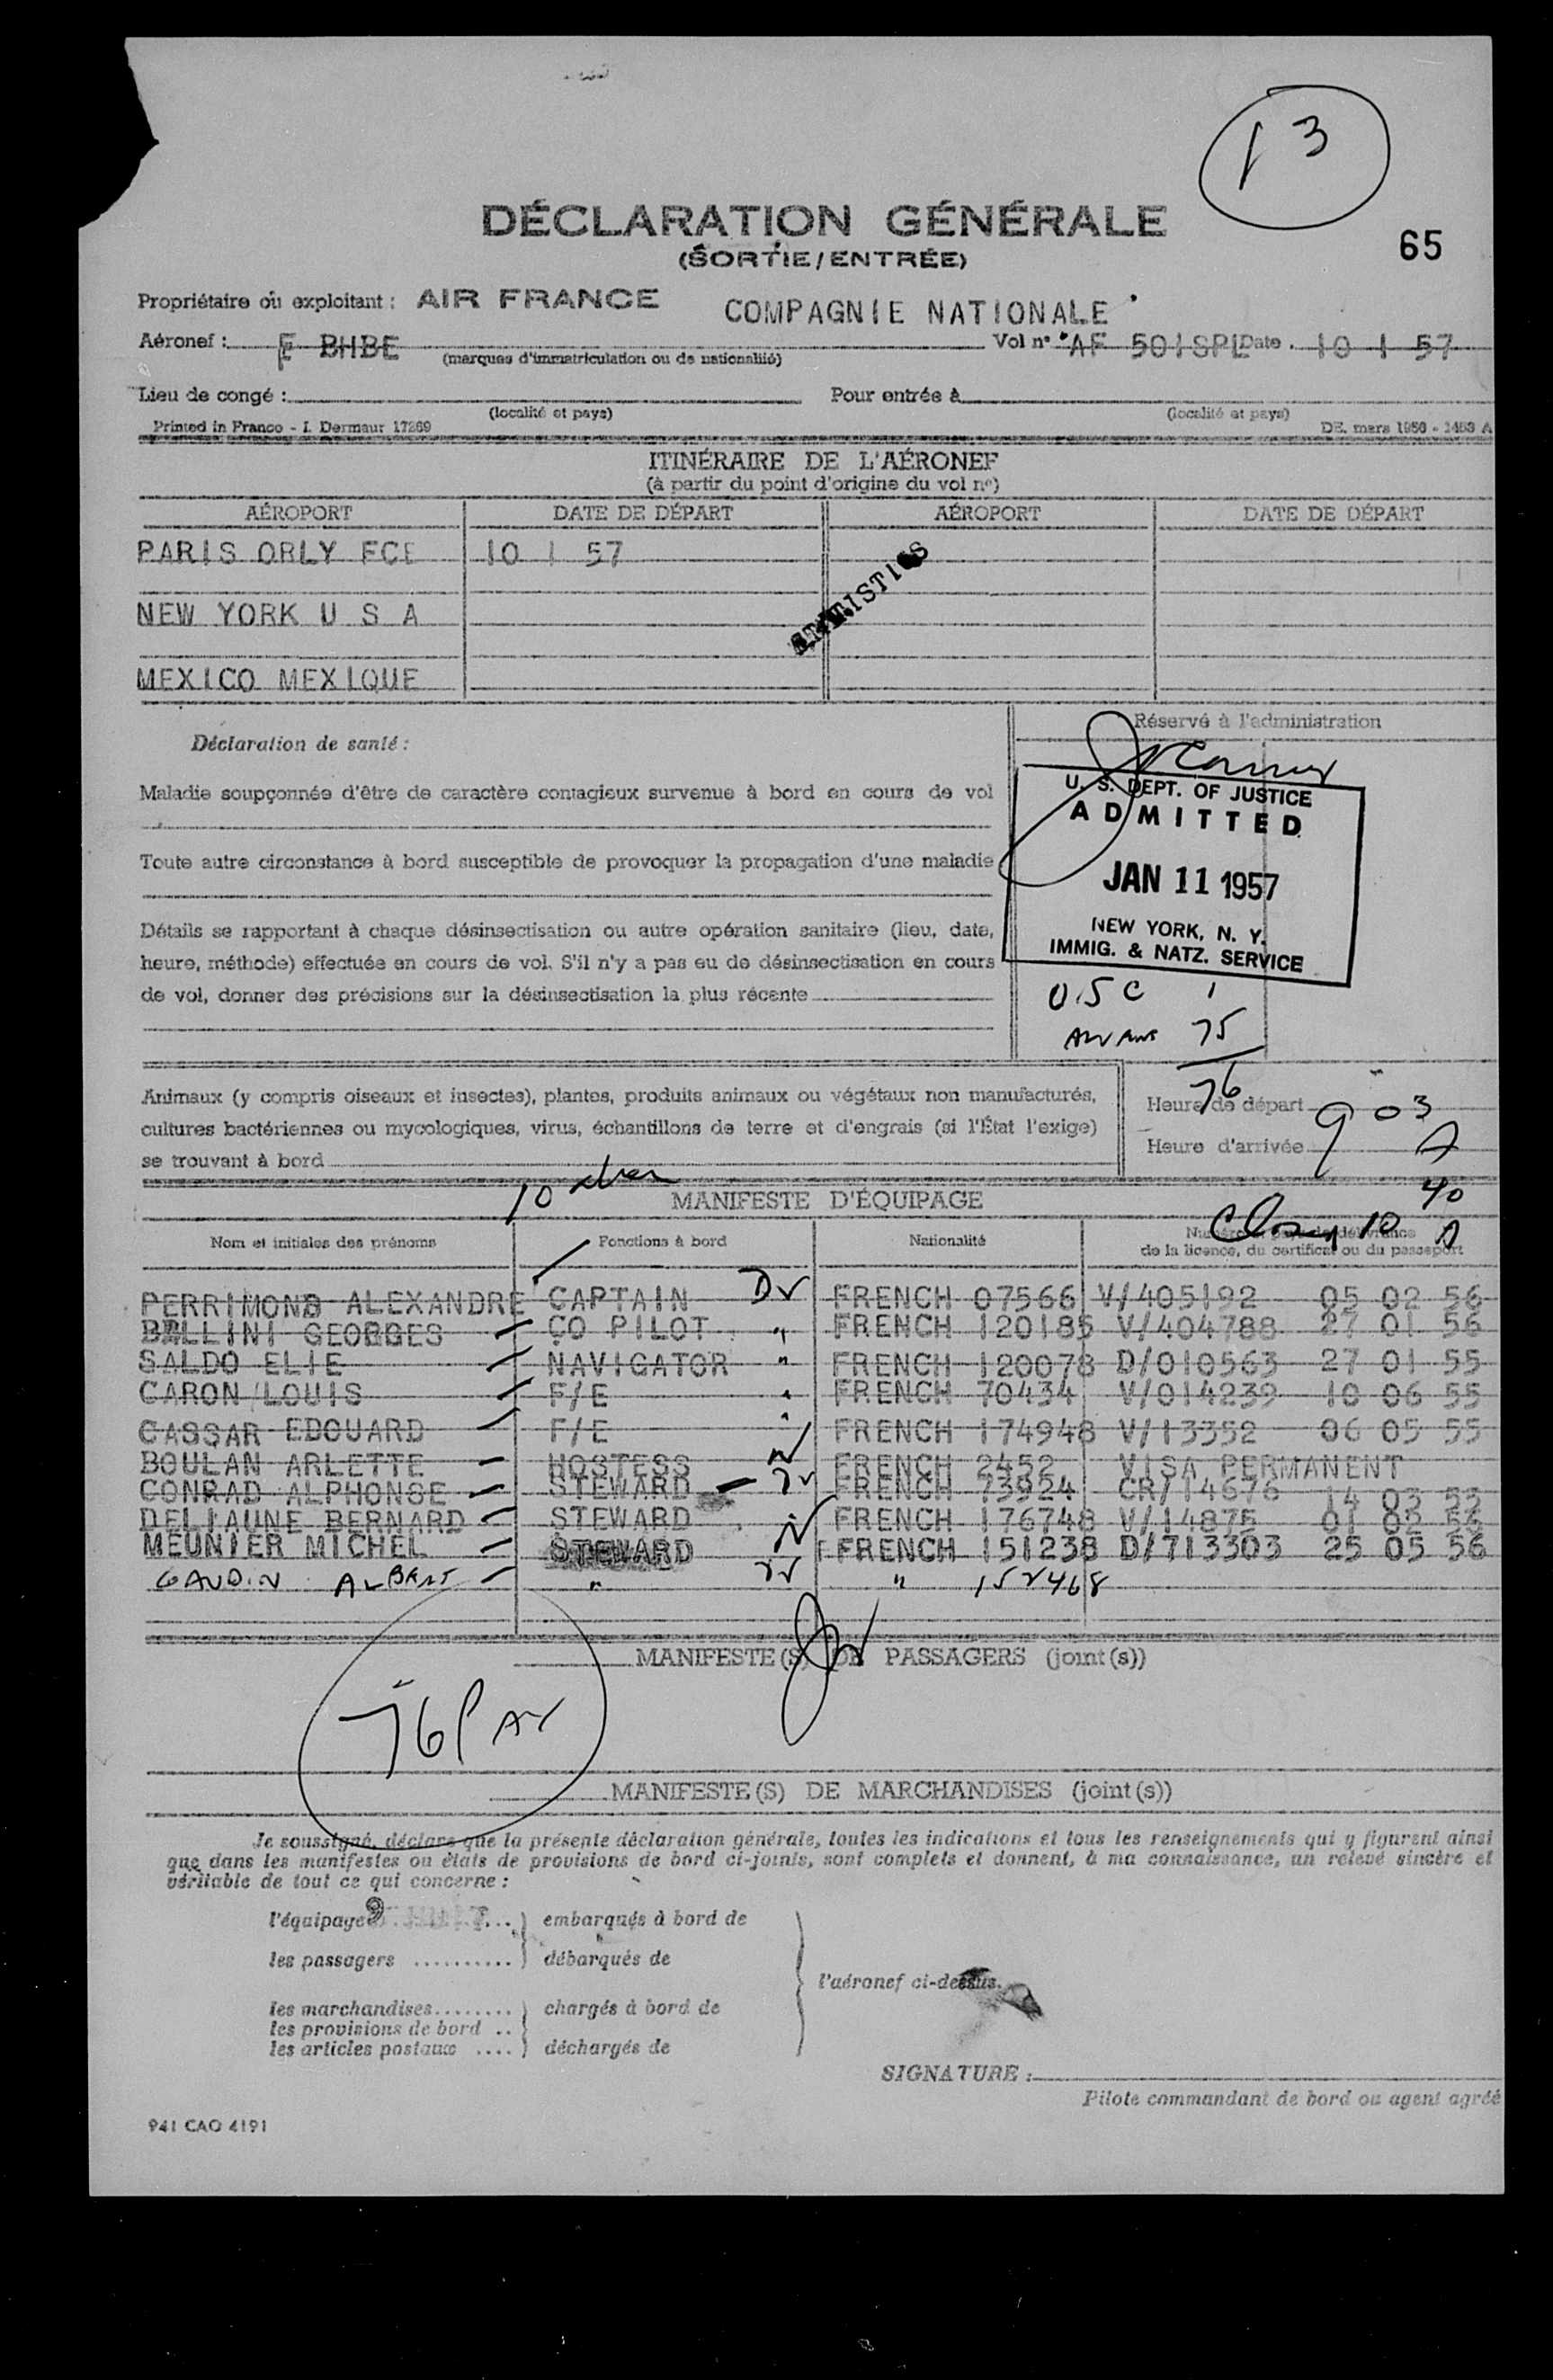 13
DÉCLARATION GÉNÉRALE
(SORTIE/ENTRÉE)
65
Propriétaire ou exploitant : AIR FRANCE COMPAGNIE NATIONALE
Aéronef : F BHBE (marques d'immatriculation ou de nationalité) Vol n° AF 501SPL Date . 10 1 57
Lieu de congé : Pour entrée à
(localité et pays) (localité et pays)
Printed in France - I. Dermaur 17269 DE. mars 1956 - 1453 A
ITINÉRAIRE DE L'AÉRONEF
(à partir du point d'origine du vol n°)
AÉROPORT DATE DE DÉPART AÉROPORT DATE DE DÉPART
PARIS ORLY FCE 10 1 57
STATISTICS
NEW YORK U S A
MEXICO MEXIQUE
Réservé à l'administration
Déclaration de santé :
Maladie soupçonnée d'être de caractère contagieux survenue à bord en cours de vol
Toute autre circonstance à bord susceptible de provoquer la propagation d'une maladie
Détails se rapportant à chaque désinsectisation ou autre opération sanitaire (lieu, date,
heure, méthode) effectuée en cours de vol. S'il n'y a pas eu de désinsectisation en cours
de vol, donner des précisions sur la désinsectisation la plus récente
U. S. DEPT. OF JUSTICE
ADMITTED
JAN 11 1957
NEW YORK, N. Y.
IMMIG. & NATZ. SERVICE
USC 1
75
76
Animaux (y compris oiseaux et insectes), plantes, produits animaux ou végétaux non manufacturés,
cultures bactériennes ou mycologiques, virus, échantillons de terre et d'engrais (si l'État l'exige)
se trouvant à bord
Heure de départ 9 03
Heure d'arrivée A
10
MANIFESTE D'ÉQUIPAGE
10 40 A
Nom et initiales des prénoms Fonctions à bord Nationalité Numéro et pays de délivrance
de la licence, du certificat ou du passeport
PERRIMOND ALEXANDRE CAPTAIN FRENCH 07566 V/405192 05 02 56
BELLINI GEORGES CO PILOT " FRENCH 120185 V/404788 27 01 56
SALDO ELIE NAVIGATOR " FRENCH 120078 D/010563 27 01 55
CARON LOUIS F/E " FRENCH 70434 V/014239 10 06 55
CASSAR EDOUARD F/E " FRENCH 174948 V/13352 06 05 55
BOULAN ARLETTE HOSTESS FRENCH 2452 VISA PERMANENT
CONRAD ALPHONSE STEWARD FRENCH 73924 CR/14676 14 03 53
DELJAUNE BERNARD STEWARD FRENCH 176748 V/14875 01 02 56
MEUNIER MICHEL STEWARD FRENCH 151238 D/713303 25 05 56
GAUDIN ALBERT " " 152468
MANIFESTE(S) DE PASSAGERS (joint(s))
76
MANIFESTE(S) DE MARCHANDISES (joint(s))
Je soussigné, déclare que la présente déclaration générale, toutes les indications et tous les renseignements qui y figurent ainsi
que dans les manifestes ou états de provisions de bord ci-joints, sont complets et donnent, à ma connaissance, un relevé sincère et
véritable de tout ce qui concerne :
l'équipage 9 ... embarqués à bord de
les passagers .......... débarqués de
l'aéronef ci-dessus.
les marchandises........ chargés à bord de
les provisions de bord ..
les articles postaux .... déchargés de
SIGNATURE :
Pilote commandant de bord ou agent agréé
941 CAO 4191